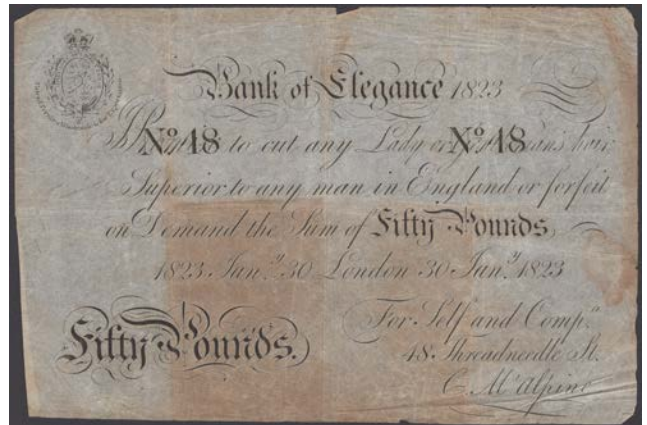 Bank of Elegance 1823
I Promise to cut any Lady or Gentleman's hair
Nº 48 Nº 48
Superior to any man in England or forfeit
on Demand the Sum of Fifty Pounds
1823 Janʸ 30 London 30 Janʸ 1823
Fifty Pounds.
For Self and Compʸ
48 Threadneedle St.
C McAlpine